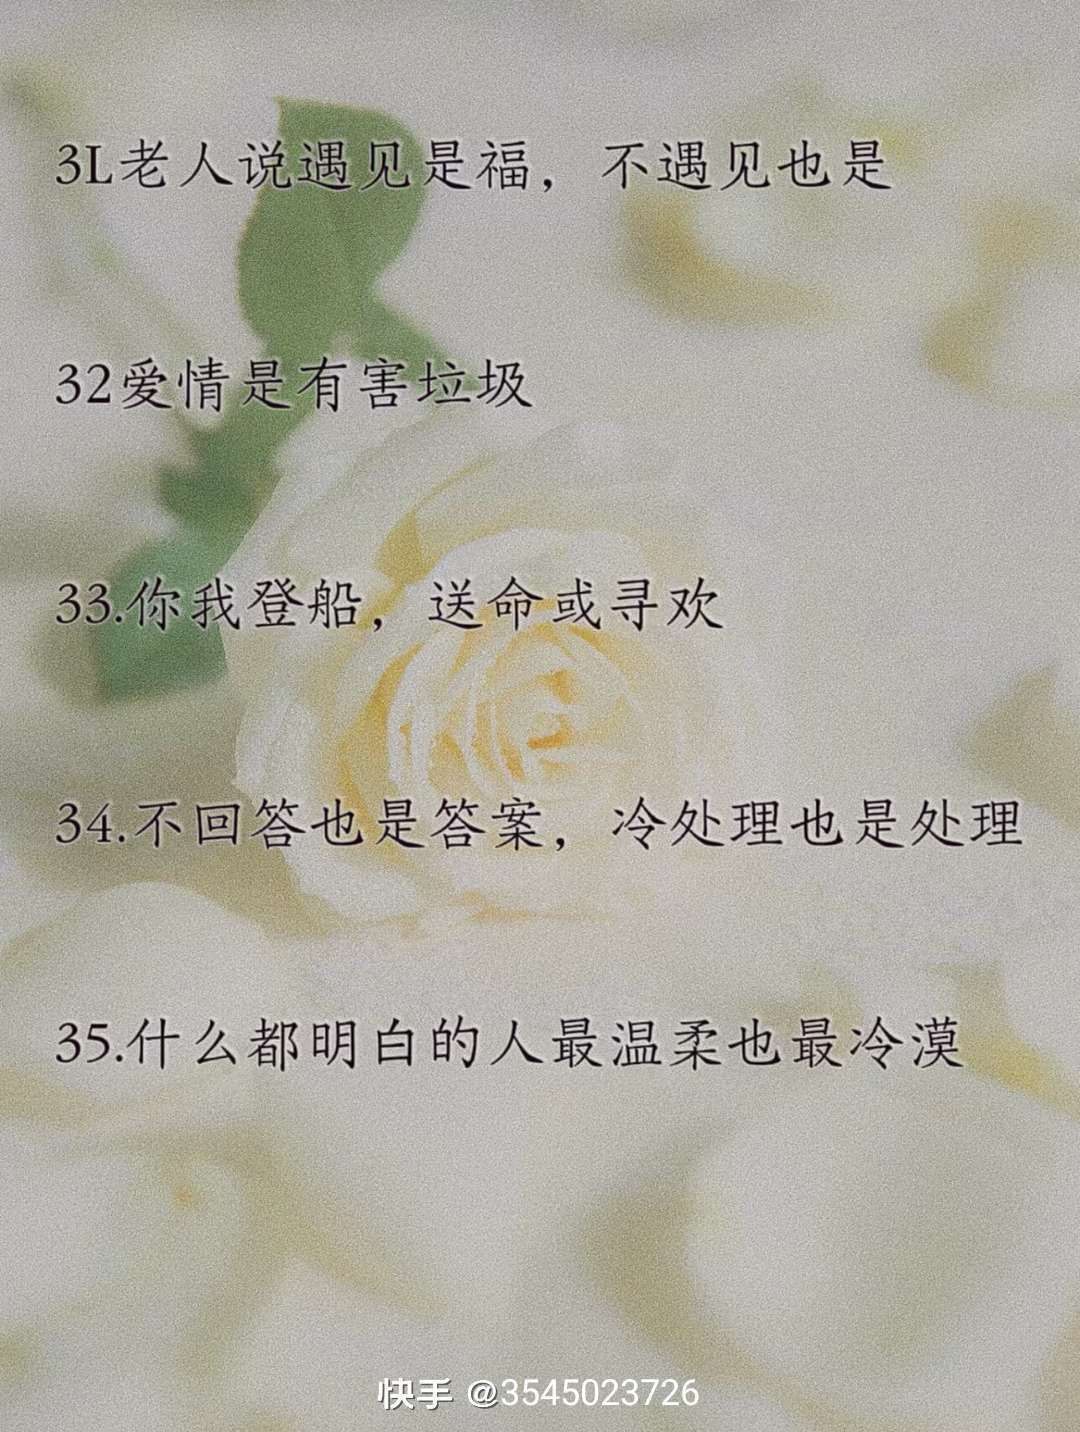 3L老人说遇见是福，不遇见也是
32爱情是有害垃圾
33.你我登船，送命或寻欢
34.不回答也是答案，冷处理也是处理
35.什么都明白的人最温柔也最冷漠
快手 @3545023726